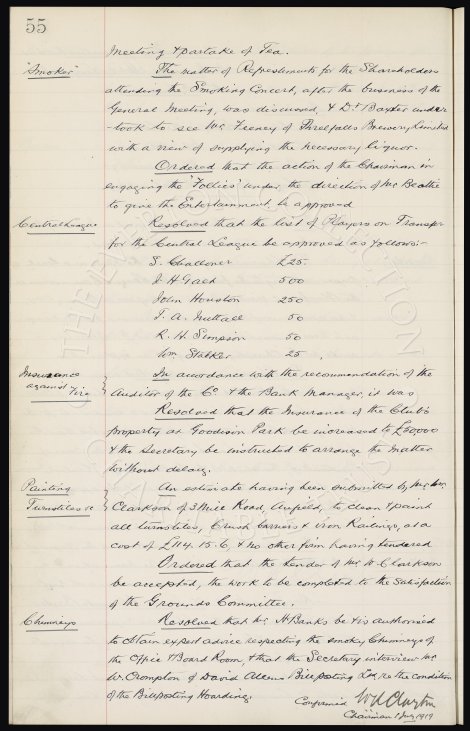 55
Meeting & partake of Tea.
"Smoker"
The matter of Refreshments for the Shareholders
attending the Smoking Concert, after the business of the
General Meeting, was discussed, & Dr Baxter under
-took to see Mr Feeney of Threlfalls Brewery Limited
with a view of supplying the necessary liquor.
Ordered that the action of the Chairman in
engaging the "Follies" under the direction of Mr Beattie
to give the Entertainment be approved
Central League
Resolved that the list of Players on Transfer
for the Central League be approved as follows:-
S. Challinor £25.
J. H Galt 500
John Houston 250
T. A. Nuttall 50
R. H. Simpson 50
Wm Stalker 25.
Insurance
against Fire
In accordance with the recommendation of the
Auditor of the Co & the Bank Manager, it was
Resolved that the Insurance of the Club's
property at Goodison Park be increased to
& the Secretary be instructed to arrange the matter
without delay.
Painting
Turnstiles &c
An estimate having been submitted by Mr Wm
Clarkson of 3 Mill Road, Anfield, to clean & paint
all turnstiles, Crush barriers & iron Railings, at a
cost of £114.15.6, & no other firm having tendered
Ordered that the tender of Mr W. Clarkson
be accepted, the work to be completed to the satisfaction
of the Grounds Committee.
Chimneys
Resolved that Mr H Banks be & is authorised
to obtain expert advice respecting the smoky Chimneys of
the Office & Board Room & that the Secretary interview Mr
W. Crompton of David Allens Billposting Ltd, re the condition
of the Billposting Hoarding.
Confirmed W R Clayton
Chairman 1 July 1919
THE EVERTON COLLECTION